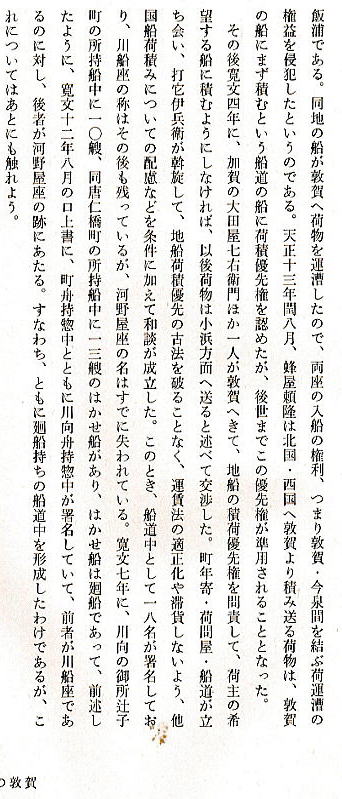 飯浦である。同地の船が敦賀へ荷物を運漕したので、両座の入船の権利、つまり敦賀・今泉間を結ぶ荷運漕の
権益を侵犯したというのである。天正十三年閏八月、蜂屋頼隆は北国・西国へ敦賀より積み送る荷物は、敦賀
の船にまず積むという船道の船に荷積優先権を認めたが、後世までこの優先権が準用されることとなった。
その後寛文四年に、加賀の大田屋七右衛門ほか一人が敦賀へきて、地船の積荷優先権を問責して、荷主の希
望する船に積むようにしなければ、以後荷物は小浜方面へ送ると述べて交渉した。町年寄・荷問屋・船道が立
ち会い、打它伊兵衛が斡旋して、地船荷積優先の古法を破ることなく、運賃法の適正化や滞貨しないよう、他
国船荷積みについての配慮などを条件に加えて和談が成立した。このとき、船道中として一八名が署名してお
り、川船座の称はその後も残っているが、河野屋座の名はすでに失われている。寛文七年に、川向の御所辻子
町の所持船中に一〇艘、同唐仁橋町の所持船中に一三艘のはかせ船があり、はかせ船は廻船であって、前述し
たように、寛文十二年八月の口上書に、町舟持惣中とともに川向舟持惣中が署名していて、前者が川船座であ
るのに対し、後者が河野屋座の跡にあたる。すなわち、ともに廻船持ちの船道中を形成したわけであるが、こ
れについてはあとにも触れよう。
の敦賀